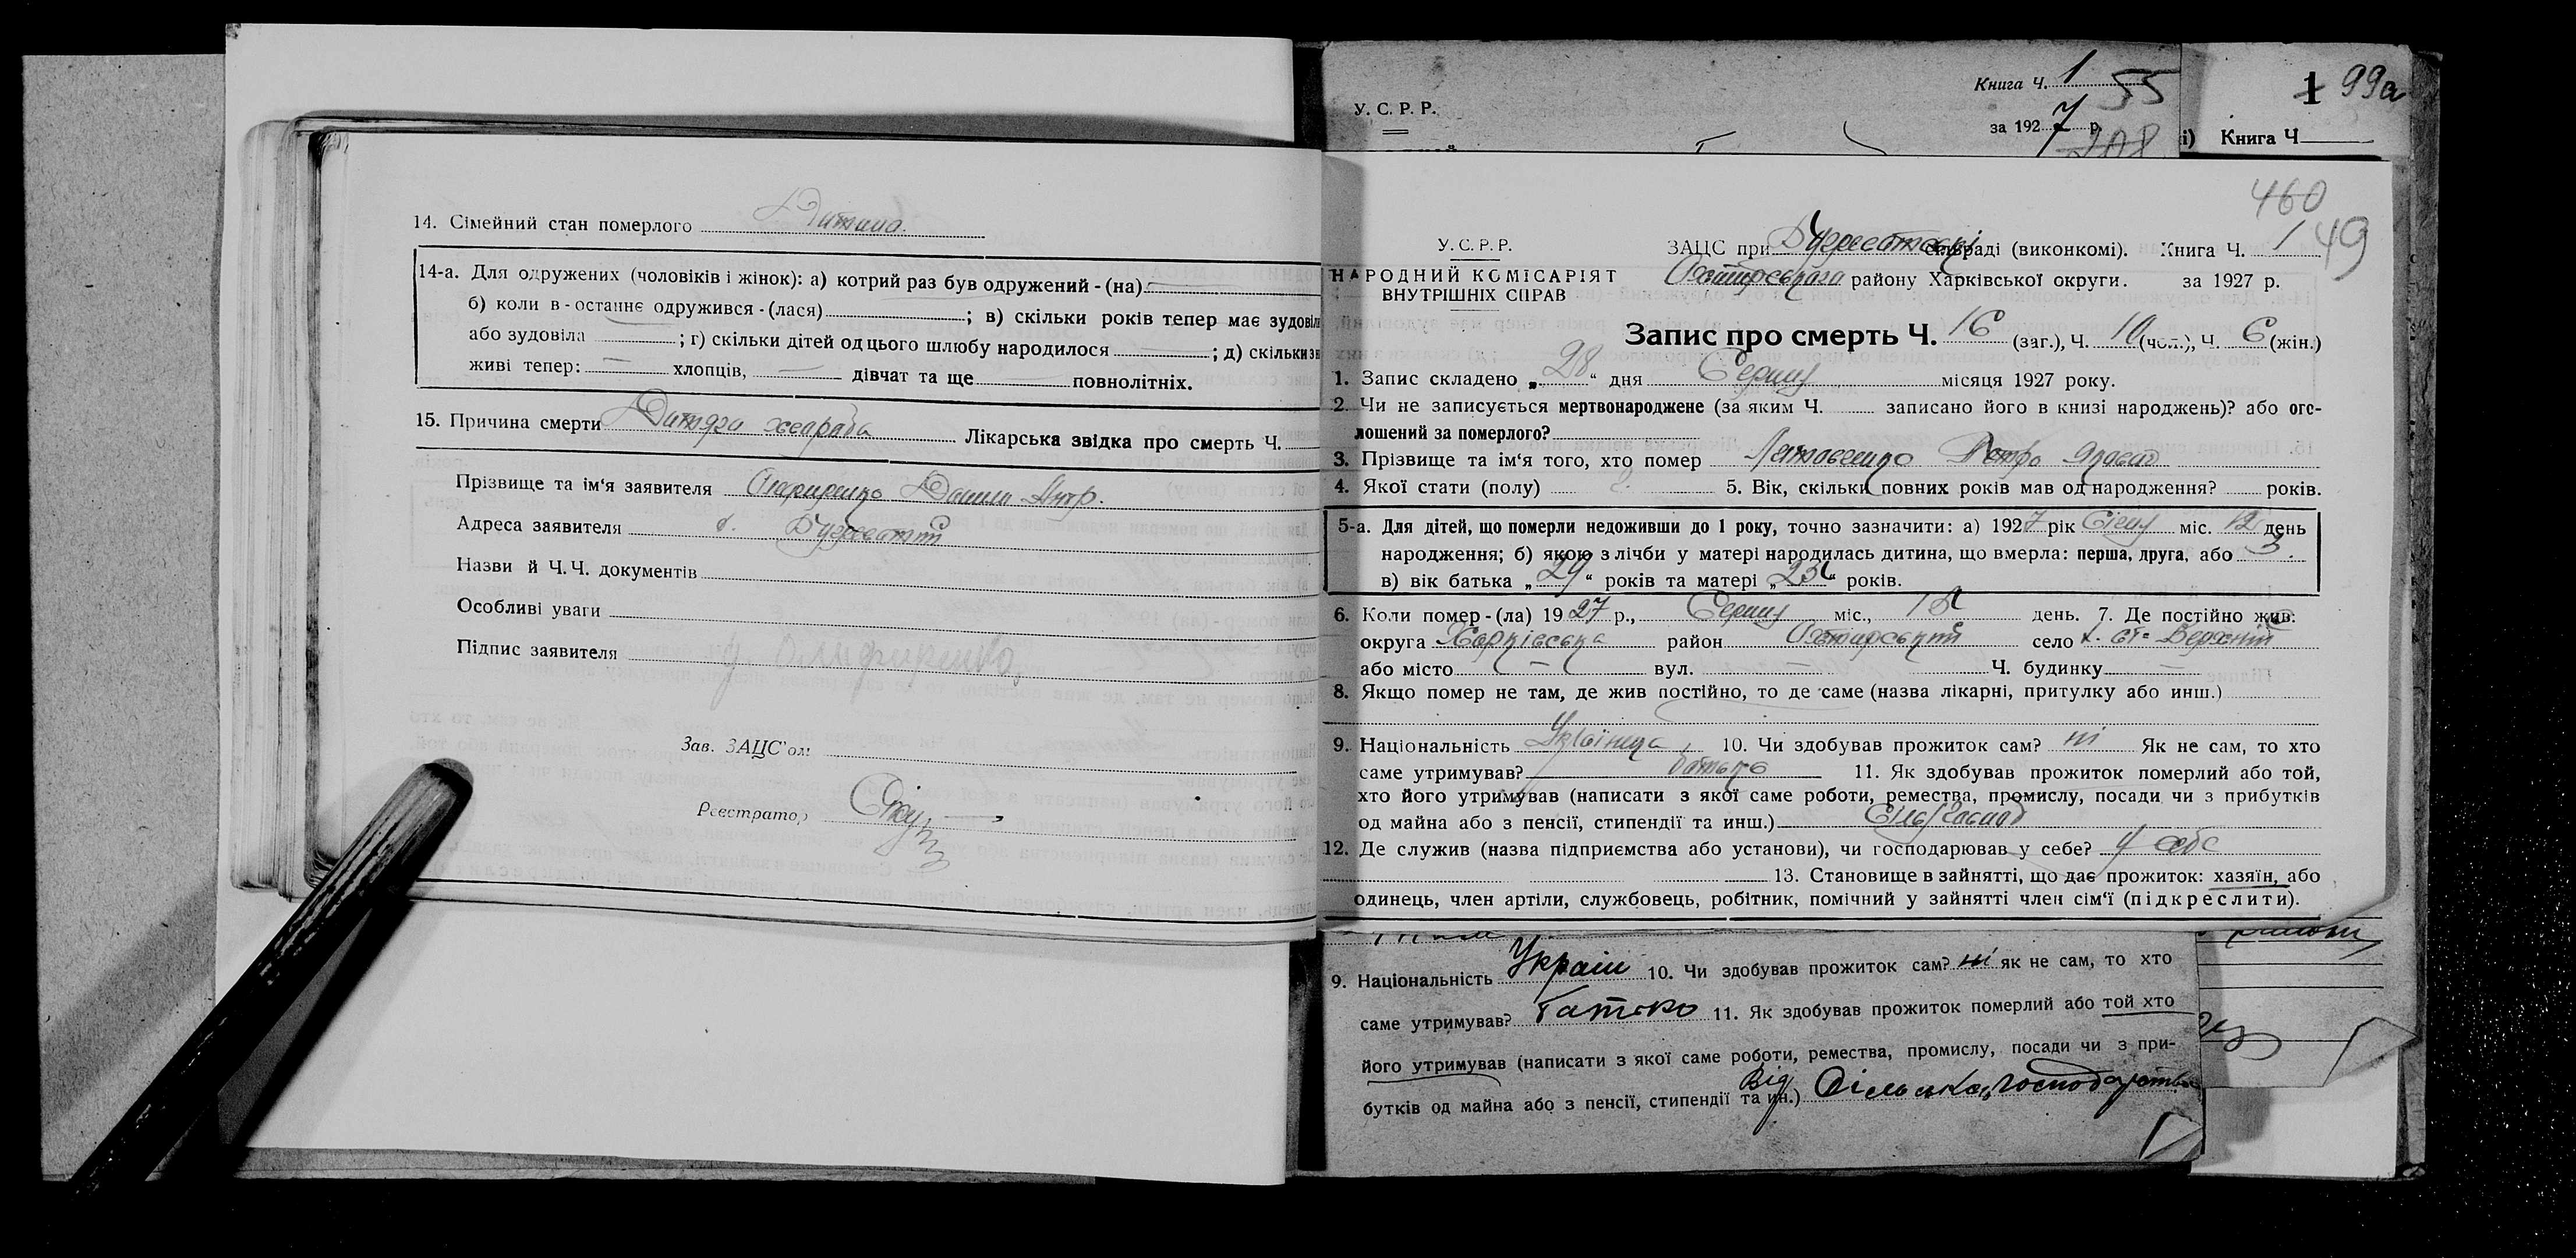 14. Сімейний стан померлого Дитина.
14-а. Для одружених (чоловіків і жінок): а) котрий раз був одружений - (на)
б) коли в - останнє одружився - (лася) ; в) скільки років тепер має зудовіл
або зудовіла ; г) скільки дітей од цього шлюбу народилося ; д) скільки з н
живі тепер: — хлопців, — дівчат та ще повнолітніх.
15. Причина смерти Дитяча хвароба Лікарська звідка про смерть Ч.
Прізвище та ім'я заявителя Данило
Адреса заявителя
Назви й Ч. Ч. документів
Особливі уваги
Підпис заявителя
Зав. ЗАЦС'ом
Реєстратор
У. С. Р. Р.
Книга Ч. 1
55
за 1927 р.
208
1 99а
і) Книга Ч
460
149
У. С. Р. Р.
НАРОДНИЙ КОМІСАРІЯТ
ВНУТРІШНІХ СПРАВ
ЗАЦС при сільраді (виконкомі). Книга Ч.
району Харківської округи. за 1927 р.
Запис про смерть Ч. 16 (заг.), Ч. 10 (чол.), Ч. 6 (жін.)
1. Запис складено „28" дня Серпня місяця 1927 року.
2. Чи не записується мертвонароджене (за яким Ч. записано його в книзі народжень)? або ого-
лошений за померлого?
3. Прізвище та ім'я того, хто помер Петро
4. Якої стати (полу) 5. Вік, скільки повних років мав од народження? років.
5-а. Для дітей, що померли недоживши до 1 року, точно зазначити: а) 1927 рік Січня міс. 12 день
народження; б) якою з лічби у матері народилась дитина, що вмерла: перша, друга, або 3.
в) вік батька „29" років та матері „23" років.
6. Коли помер - (ла) 1927 р., Серпня міс., день. 7. Де постійно жив:
округа Харківська район Охтирський село
або місто — вул. — Ч. будинку —
8. Якщо помер не там, де жив постійно, то де саме (назва лікарні, притулку або инш.)
9. Національність Українка 10. Чи здобував прожиток сам? ні Як не сам, то хто
саме утримував? батько 11. Як здобував прожиток померлий або той,
хто його утримував (написати з якої саме роботи, ремества, промислу, посади чи з прибутків
од майна або з пенсії, стипендії та инш.) Сільгоспод
12. Де служив (назва підприємства або установи), чи господарював у себе? у себе
13. Становище в зайнятті, що дає прожиток: хазяїн, або
одинець, член артіли, службовець, робітник, помічний у зайнятті член сім'ї (підкреслити).
9. Національність Україн 10. Чи здобував прожиток сам? ні як не сам, то хто
саме утримував? Батько 11. Як здобував прожиток померлий або той хто
його утримував (написати з якої саме роботи, ремества, промислу, посади чи з при-
бутків од майна або з пенсії, стипендії та ин.) Від сільського господарства